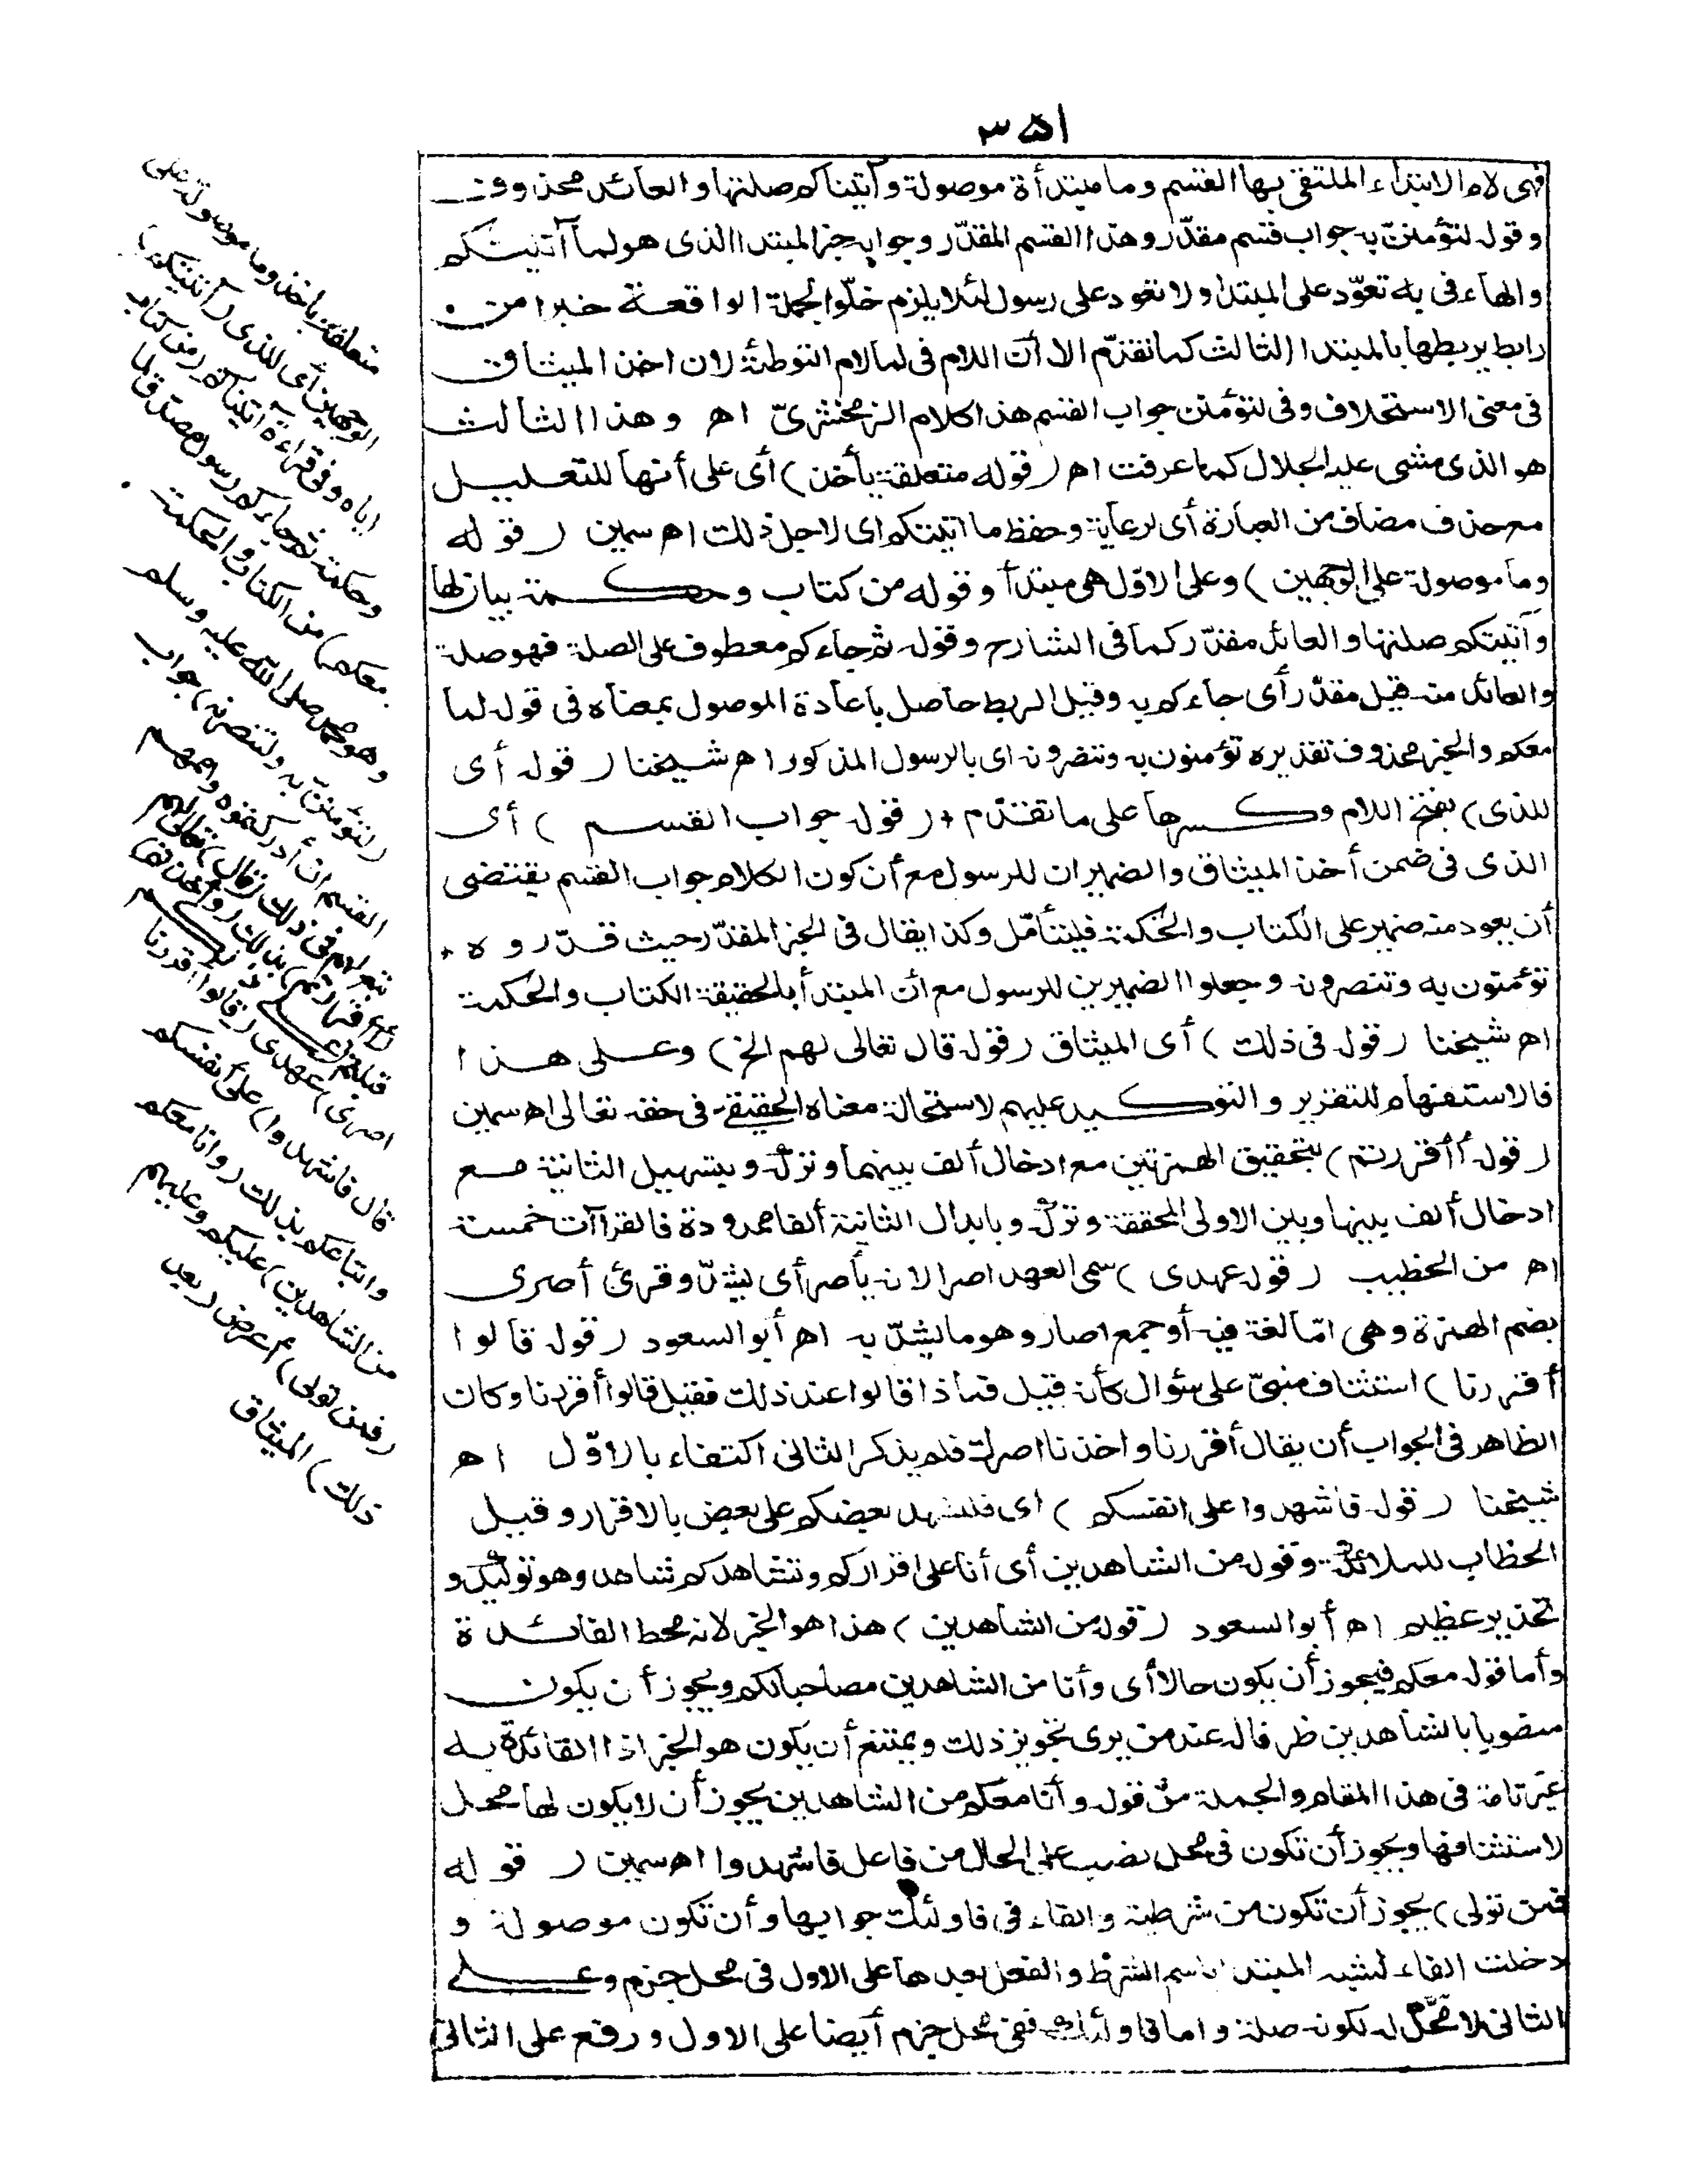 ٣٥١
فهى لام الابتداء الملتقى بها القسم وما مبتدأة موصولة وآتيناكم صلتها والعائد محذوف
وقوله لتؤمنن به جواب قسم مقدّر وهذا القسم المقدّر وجوابه خبر المبتدا الذى هو لما آتيتكم
والهاء فى به تعوّد على المبتدا ولا تعود على رسول لئلا يلزم خلّو الجملة الواقعة خبرا من
رابط يربطها بالمبتدا الثالث كما تقدّم الا أن اللام فى لما لام التوطئة لان اخذ الميثاق
فى معنى الاستحلاف وفى لتؤمنن جواب القسم هذا كلام الزمخشرىّ اه وهذا الثالث
هو الذى مشى عليه الجلال كما عرفت اه (قوله متعلقة بأخذ) أى على أنها للتعليل
مع حذف مضاف من العبارة أى لرعاية وحفظ ما اتيتكم اى لاجل ذلك اه سمين (قوله
وما موصولة على الوجهين) وعلى الاوّل هى مبتدأ وقوله من كتاب وحكمة بيان لها
وآتيتكم صلتها والعائد مقدّر كما فى الشارح وقوله ثم جاءكم معطوف على الصلة فهو صلة
والعائد منه قيل مقدّر أى جاءكم به وقيل الربط حاصل باعادة الموصول بمعناه فى قوله لما
معكم والخبر محذوف تقديره تؤمنون به وتنصرونه اى بالرسول المذكور اه شيخنا (قوله أى
للذى) بفتح اللام وكسرها على ما تقدّم (قوله جواب القسم) أى
الذى فى ضمن أخذ الميثاق والضميران للرسول مع أن كون الكلام جواب القسم يقتضى
أن يعود منه ضمير على الكتاب والحكمة فليتأمّل وكذا يقال فى الخبر المقدّر حيث قدّروه
تؤمنون به وتنصرونه وجعلوا الضميرين للرسول مع أن المبتدأ بالحقيقة الكتاب والحكمة
اه شيخنا (قوله فى ذلك) أى الميثاق (قوله قال تعالى لهم الخ) وعلى هذا
فالاستفهام للتقرير والتوكيد عليهم لاستحالة معناه الحقيقى فى حقه تعالى اه سمين
(قوله أأقررتم) بتحقيق الهمزتين مع ادخال ألف بينهما وتركه وبتسهيل الثانية مع
ادخال ألف بينها وبين الاولى المحققة وتركه وبابدال الثانية ألفا ممدودة فالقراآت خمسة
اه من الخطيب (قوله عهدى) سمى العهد اصرا لانه يأصر أى يشدّ وقرئ أصرى
بضم الهمزة وهى امّا لغة فيه أو جمع اصار وهو ما يشدّ به اه أبو السعود (قوله قالوا
أقررنا) استئناف مبنىّ على سؤال كأنه قيل فماذا قالوا عند ذلك فقيل قالوا أقررنا وكان
الظاهر فى الجواب أن يقال أقررنا وأخذنا اصرك فلم يذكر الثانى اكتفاء بالاوّل اه
شيخنا (قوله فاشهدوا على انفسكم) اى فليشهد بعضكم على بعض بالاقرار وقيل
الخطاب للملائكة وقوله من الشاهدين أى أنا على اقراركم وتشاهدكم شاهد وهو توكيد و
تحذير عظيم اه أبو السعود (قوله من الشاهدين) هذا هو الخبر لانه محط الفائدة
وأما قوله معكم فيجوز أن يكون حالا أى وأنا من الشاهدين مصاحبا لكم ويجوز أن يكون
منصوبا بالشاهدين ظرفا له عند من يرى تجويز ذلك ويمتنع أن يكون هو الخبر اذ الفائدة به
غير تامة فى هذا المقام والجملة من قوله وأنا معكم من الشاهدين يجوز أن لا يكون لها محل
لاستئنافها ويجوز أن تكون فى محل نصب على الحال من فاعل فاشهدوا اه سمين (قوله
فمن تولى) يجوز أن تكون من شرطية والفاء فى فاولئك جوابها وأن تكون موصولة و
دخلت الفاء لشبه المبتدا باسم الشرط والفعل بعدها على الاول فى محل جزم وعلى
الثانى لا محل له لكونه صلة واما فاولئك ففى محل جزم أيضا على الاول ورفع على الثانى
متعلقة بأخذ وما موصولة على
الوجهين أى للذى (آتيتكم)
اياه وفى قراءة آتيناكم (من كتاب
وحكمة ثم جاءكم رسول مصدق لما
معكم) من الكتاب والحكمة
وهو محمد صلى الله عليه وسلم
(لتؤمنن به ولتنصرنه) جواب
القسم ان أدركتموه وأممهم
تبع لهم فى ذلك (قال) تعالى لهم
(أأقررتم) بذلك (وأخذتم)
قبلتم (على ذلكم
اصرى) عهدى (قالوا أقررنا
قال فاشهدوا) على أنفسكم
واتباعكم بذلك (وانا معكم
من الشاهدين) عليكم وعليهم
(فمن تولى) أعرض (بعد
ذلك) الميثاق